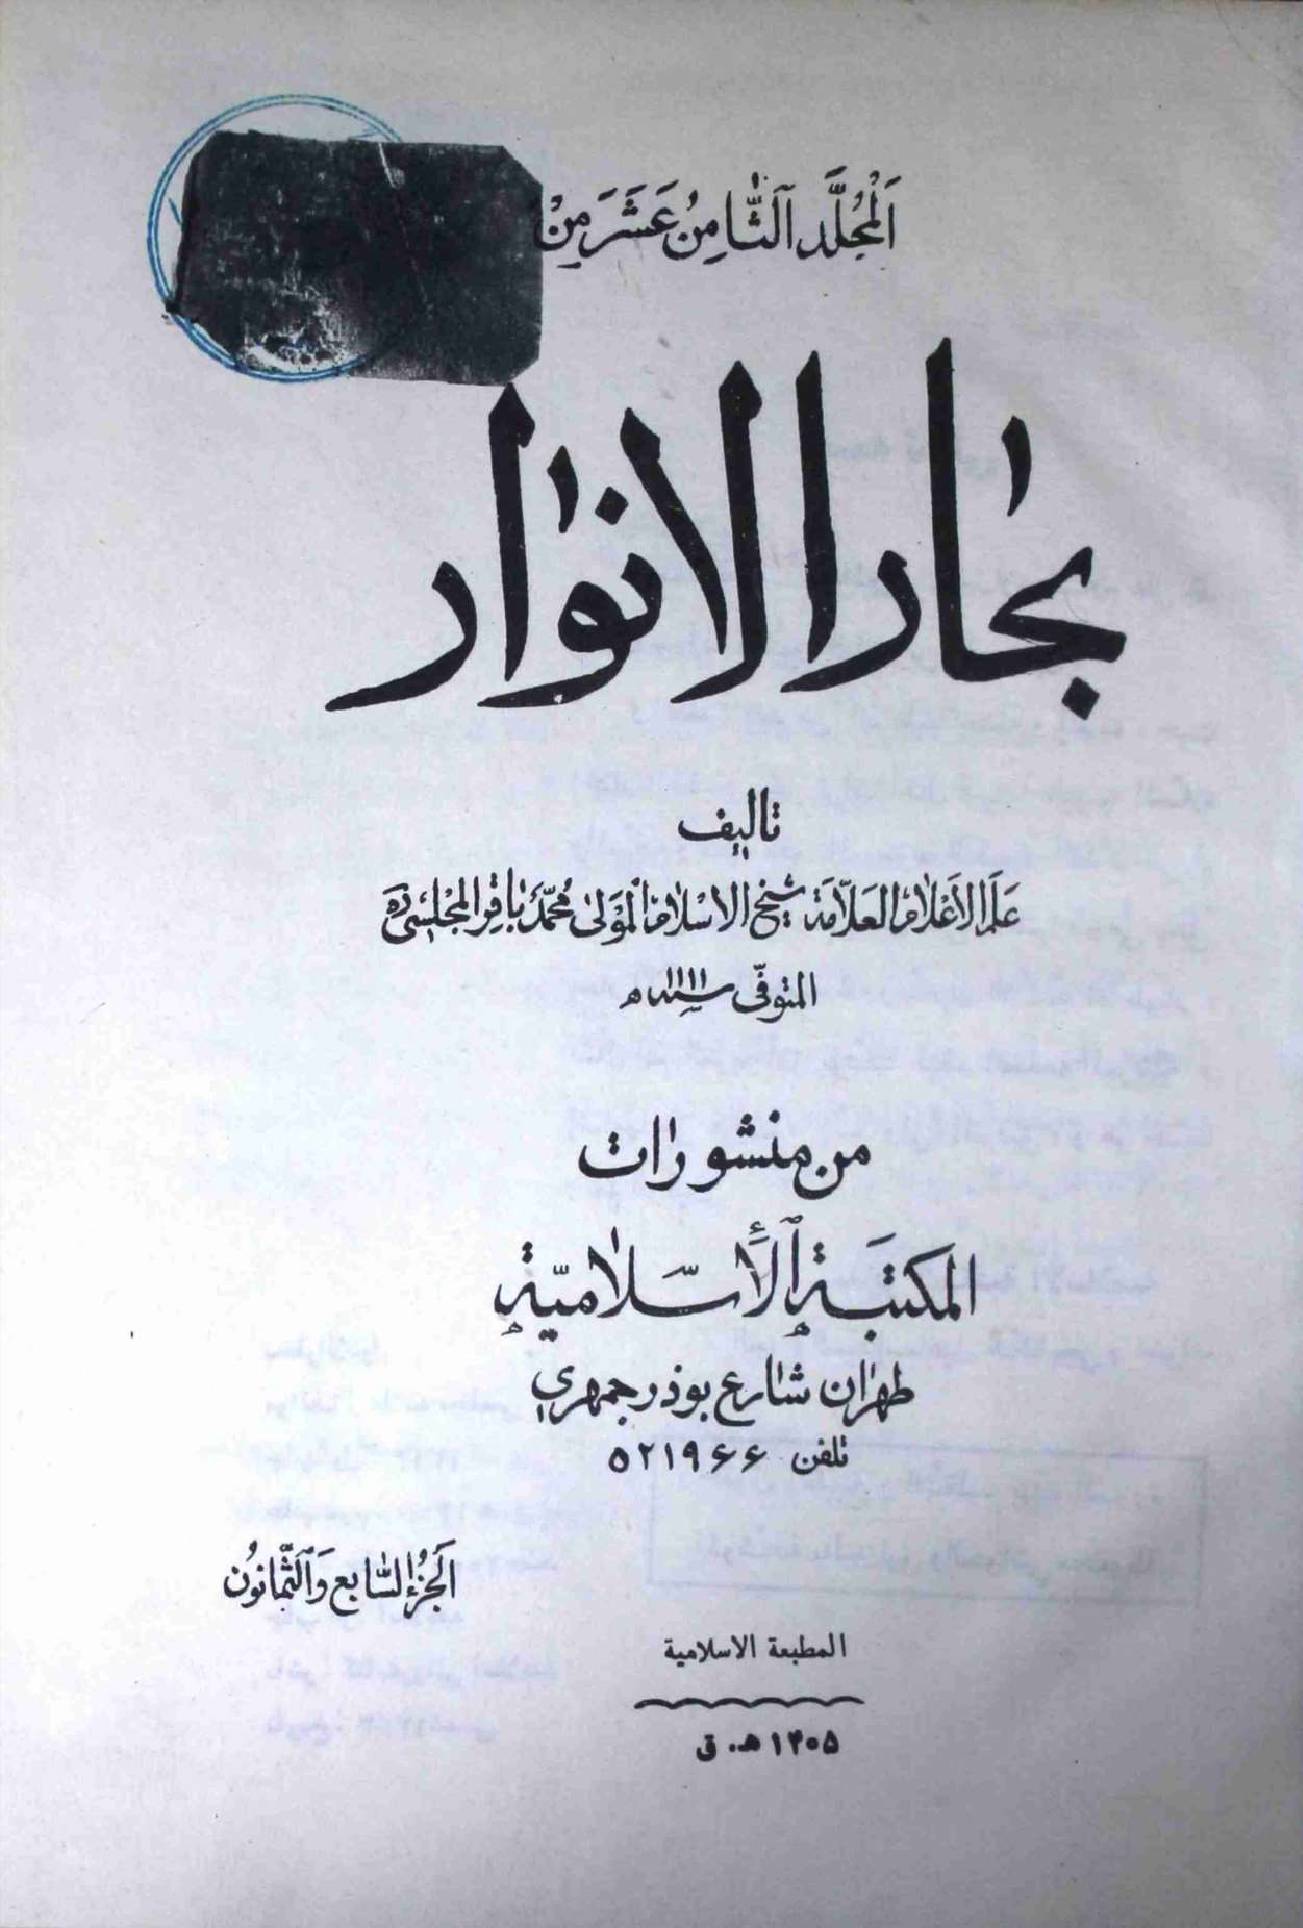 اَلْمُجَلَّد اَلثّٰامِنُ عَشَرَ مِنْ
بحٰار الانوٰار
تاليف
عَلَم الاَعْلام العَلاّمَة شيخ الاسْلام المَوْلىٰ مُحَمَّد بٰاقِر المجْلِسىّ ره
المتوفّى سنة ١١١١ ه
من منشورٰات
المكتبَة اَلأسْلٰاميّة
طهرٰان شٰارع بوذرجمهري
تلفن ۵۲۱۹۶۶
اَلْجُزْء السّٰابع وَالثّمٰانوُن
المطبعة الاسلامية
۱۴۰۵ هـ. ق